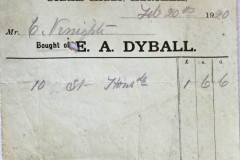 Feb 20th 1920
Mr. C. Knights
Bought of E. A. DYBALL.
£ s d
10 St 1 6 6